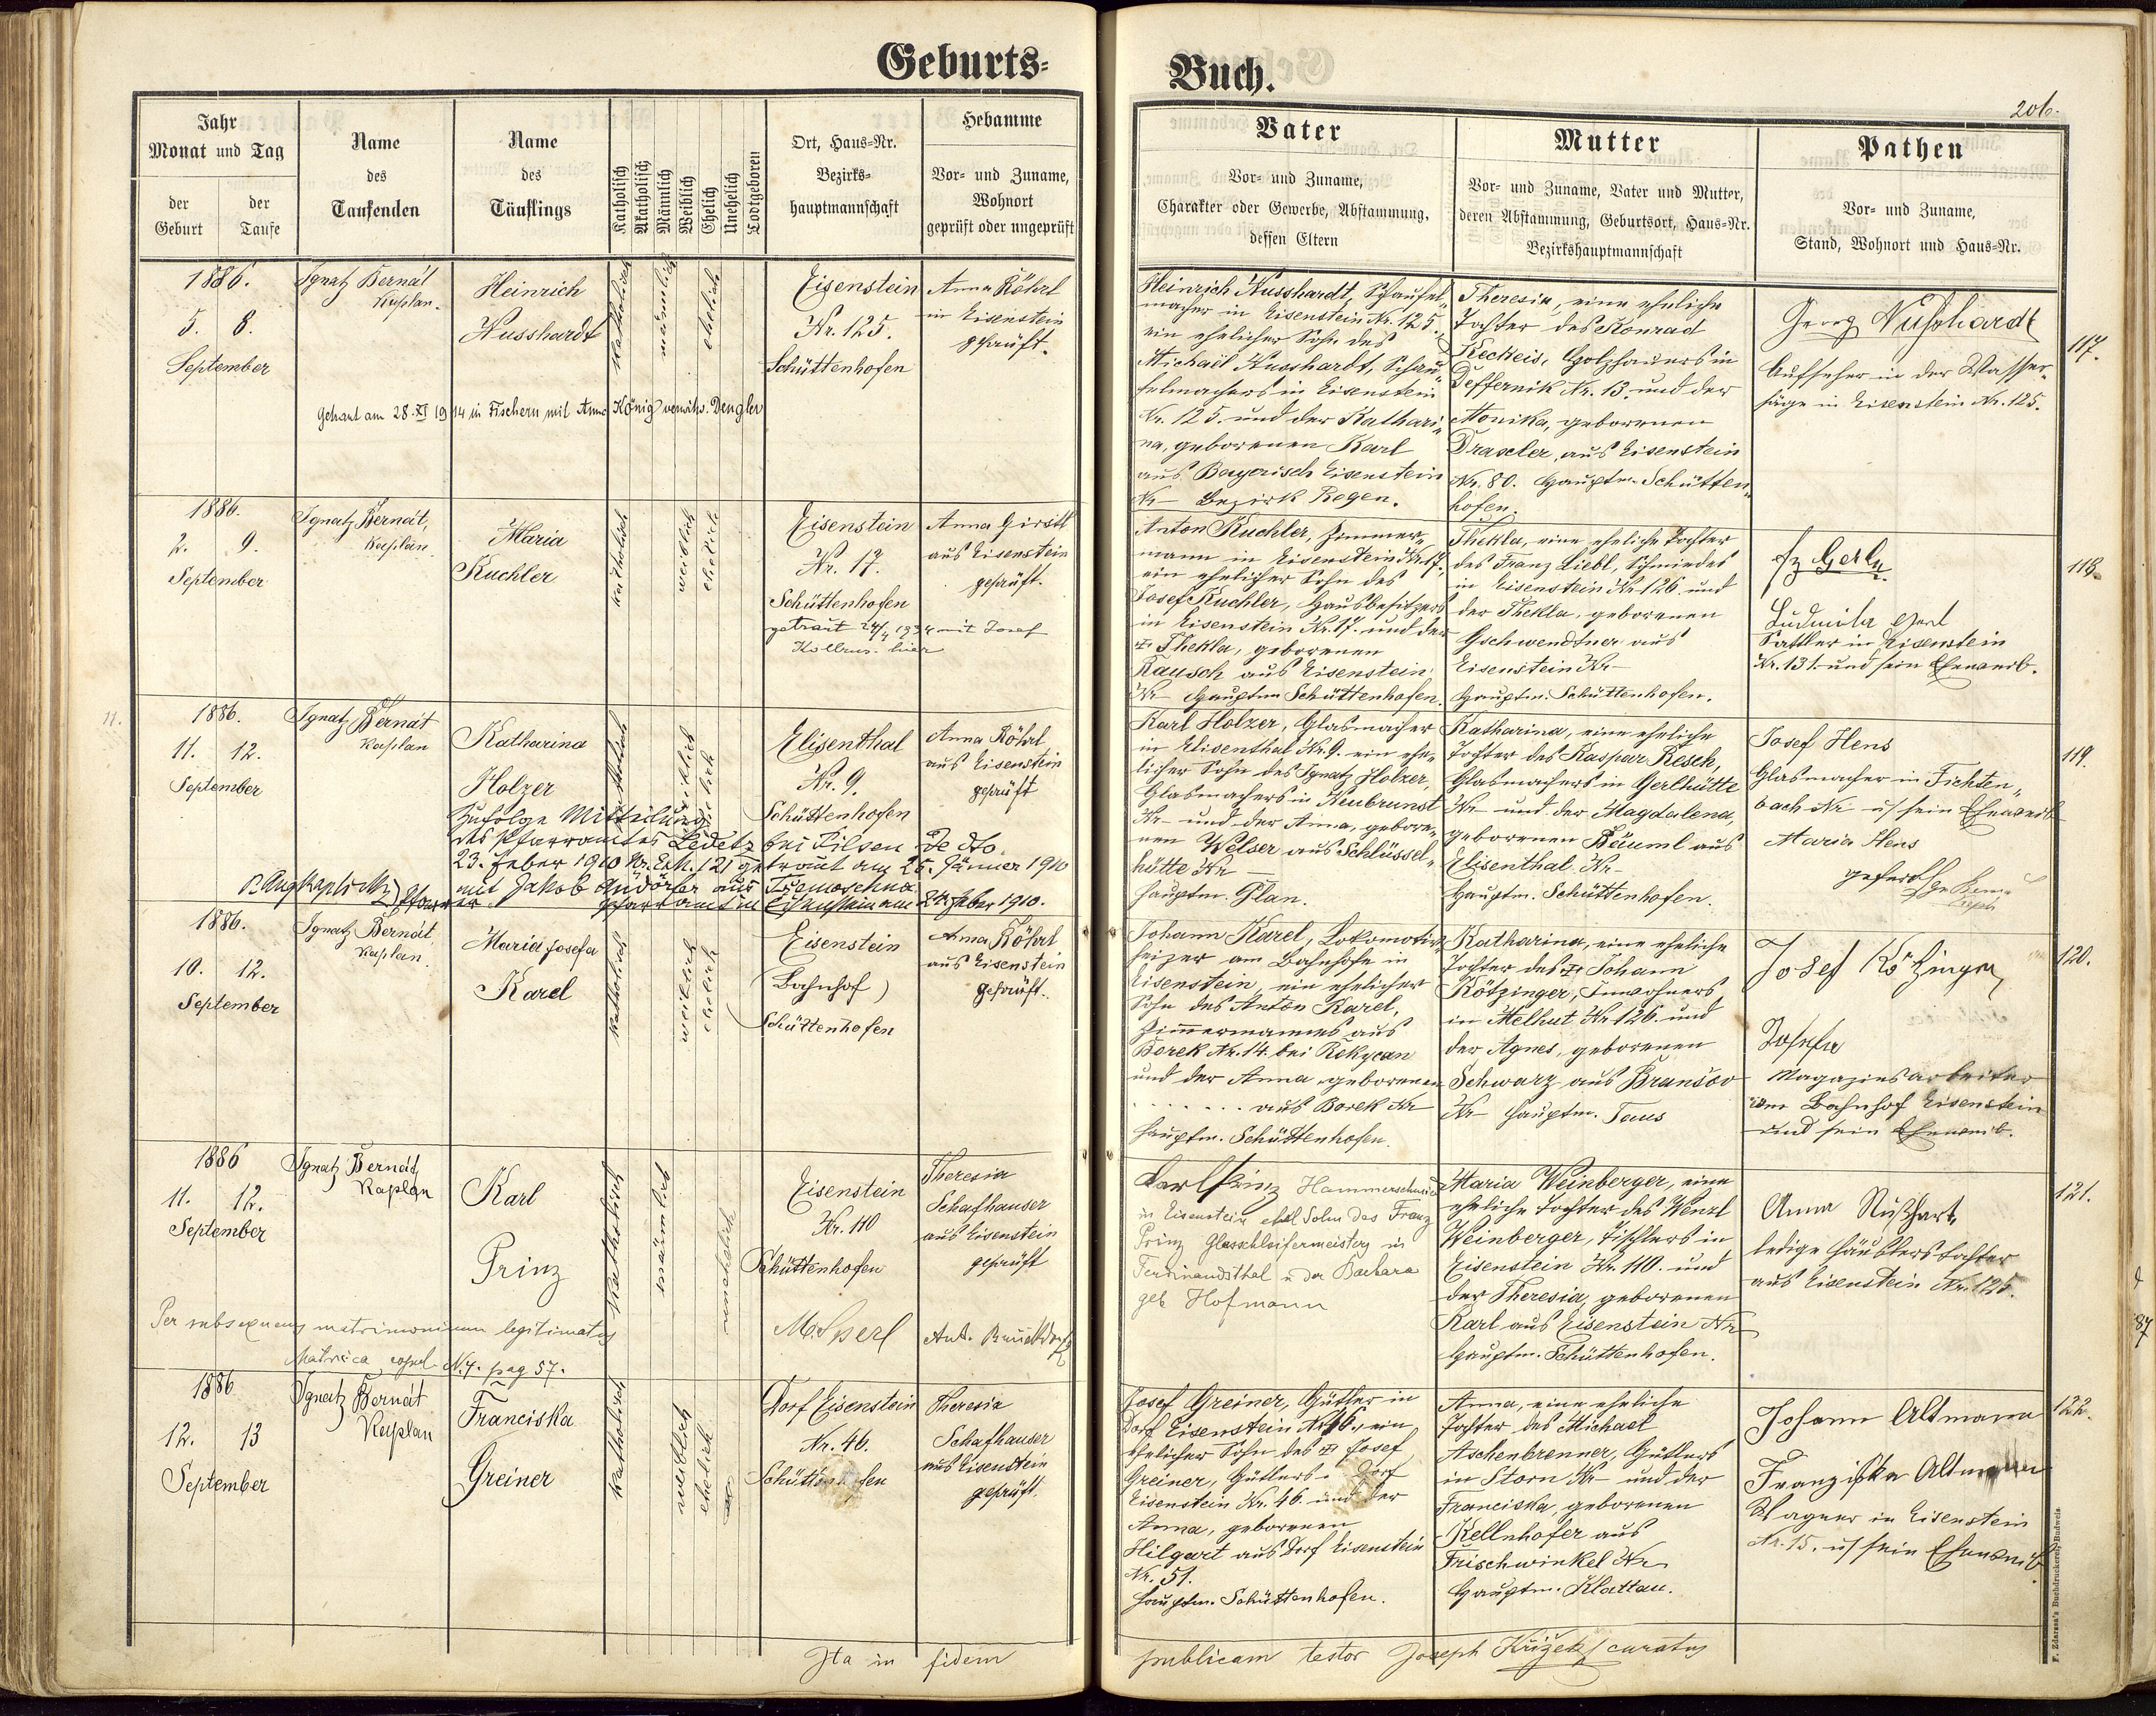 Geburts=
Buch.
206.
Jahr
Monat und Tag
der Geburt
der Taufe
Name
des
Taufenden
Name
des
Täuflings
Katholisch
Akatholisch
Männlich
Weiblich
Ehelich
Unehelich
Todtgeboren
Ort, Haus=Nr.
Bezirks=
hauptmannschaft
Hebamme
Vor= und Zuname,
Wohnort
geprüft oder ungeprüft
Vater
Vor= und Zuname,
Charakter oder Gewerbe, Abstammung,
dessen Eltern
Mutter
Vor= und Zuname, Vater und Mutter,
deren Abstammung, Geburtsort, Haus=Nr.
Bezirkshauptmannschaft
Pathen
Vor= und Zuname,
Stand, Wohnort und Haus=Nr.
1886.
5. 8.
September
Ignatz Bernát
Kaplan.
Heinrich
Nusshardt
katholisch
männlich
ehelich
Eisenstein
Nr. 125.
Schüttenhofen
Anna Röhrl
in Eisenstein
geprüft.
Getraut am 28. XI 1914 in Fischern mit Anna König verwitw. Dengler
Heinrich Nusshardt, Schaufel-
macher in Eisenstein Nr. 125.
ein ehelicher Sohn des
Michael Nusshardt, Schau-
felmachers in Eisenstein
Nr. 125. und der Kathari-
na, geborenen Karl
aus Bayerisch Eisenstein
Nr – Bezirk Regen.
Theresia, eine eheliche
Tochter des Konrad
Keckeis, Holzhauers in
Deffernik Nr. 13. und der
Monika, geborenen
Drascler, aus Eisenstein
Nr. 80. Hauptm. Schütten-
hofen.
Georg Nußhardt
Aufseher in der Wasser-
säge in Eisenstein Nr. 125.
117.
1886.
2. 9.
September
Ignatz Bernát,
Kaplan
Maria
Kuchler
katholisch
weiblich
ehelich
Eisenstein
Nr. 17.
Schüttenhofen
getraut 24/4 1934 mit Josef
Kollros hier
Anna Girstl
aus Eisenstein
geprüft.
Anton Kuchler, Zimmer-
mann in Eisenstein Nr. 17.,
ein ehelicher Sohn des
Josef Kuchler, Hausbesitzers
in Eisenstein Nr. 17. und der
Thekla, geborenen
Rausch aus Eisenstein
Nr – Hauptm Schüttenhofen.
Thekla, eine eheliche Tochter
des Franz Liebl, Schmiedes
in Eisenstein Nr 126 und
der Thekla, geborenen
Gschwendtner aus
Eisenstein Nr –
Hauptm. Schüttenhofen.
Fz Gerl
Ludmila Gerl
Sattler in Eisenstein
Nr. 131. und sein Eheweib.
118.
11.
1886.
11. 12.
September
Ignatz Bernát
Kaplan
Katharina
Holzer
katholisch
weiblich
ehelich
Elisenthal
Nr. 9.
Schüttenhofen
Anna Röhrl
aus Eisenstein
geprüft
Zufolge Mitteilung
des Pfarramtes Ledetz bei Pilsen de dto.
23. Feber 1910 Nr. Exh. 121 getraut am 25. Jänner 1910
mit Jakob Andörfer aus Tremoschna.
Pfarrer. Pfarramt in Eisenstein am 24. Feber 1910.
Karl Holzer, Glasmacher
in Elisenthal Nr. 9. ein ehe-
licher Sohn des Ignatz Holzer,
Glasmachers in Neubrunst
Nr – und der Anna, gebore-
nen Welser aus Schlüssel-
hütte Nr –
Hauptm. Plan.
Katharina, eine eheliche
Tochter des Kaspar Resch,
Glasmachers in Gerlhütte
Nr – und der Magdalena,
geborenen Bäuml aus
Elisenthal Nr –
Hauptm. Schüttenhofen.
Josef Hens
Glasmacher in Fichten-
bach Nr – u. sein Eheweib
Maria Hens
119.
1886.
10. 12.
September
Ignatz Bernát
Kaplan.
Maria Josefa
Karel
katholisch
weiblich
ehelich
Eisenstein
(Bahnhof)
Schüttenhofen
Anna Röhrl
aus Eisenstein
geprüft.
Johann Karel, Lokomotiv-
heizer am Bahnhofe in
Eisenstein, ein ehelicher
Sohn des Anton Karel,
Zimmermannes aus
Borek Nr. 14. bei Rokycan
und der Anna geborenen
....... aus Borek Nr –
Hauptm. Schüttenhofen.
Katharina, eine eheliche
Tochter des Johann
Kötzinger, Inwohners
in Melhut Nr 126. und
der Agnes, geborenen
Schwarz aus Branšov
Nr – Hauptm. Taus
Josef Kötzinger
Josefa
Magazinsarbeiter
am Bahnhof Eisenstein
und sein Eheweib.
120.
1886
11. 12.
September
Ignatz Bernát,
Kaplan
Karl
Prinz
katholisch
männlich
unehelich
Eisenstein
Nr. 110
Schüttenhofen
Theresia
Schafhauser
aus Eisenstein
geprüft
Per subsequens matrimonium legitimatus
Matrica copul. N. 4. pag 57.
M. Sperl
Karl Prinz Hammerschmied
in Eisenstein ehel Sohn des Franz
Prinz Glasschleifermeister in
Ferdinandsthal u der Barbara
geb Hofmann
Maria Weinberger, eine
eheliche Tochter des Wenzl
Weinberger, Tischlers in
Eisenstein Nr. 110. und
der Theresia, geborenen
Karl aus Eisenstein Nr –
Hauptm. Schüttenhofen.
Anna Nußhart,
ledige Häuslerstochter
aus Eisenstein Nr. 125.
121.
1886
12. 13
September
Ignatz Bernát
Kaplan
Franciska
Greiner
katholisch
weiblich
ehelich
Dorf Eisenstein
Nr. 46.
Schüttenhofen
Theresia
Schafhauser
aus Eisenstein
geprüft.
Josef Greiner, Gütler in
Dorf Eisenstein Nr 46., ein
ehelicher Sohn des Josef
Greiner, Gütlers Dorf
Eisenstein Nr. 46. und der
Anna, geborenen
Hilgart aus Dorf Eisenstein
Nr. 51.
Hauptm. Schüttenhofen.
Anna, eine eheliche
Tochter des Michael
Aschenbrenner, Gütlers
in Storn Nr – und der
Franciska, geborenen
Kellnhofer aus
Frischwinkel Nr –
Hauptm. Klattau.
Johann Altmann
Franziska Altmann
Wagner in Eisenstein
Nr. 15. u. sein Eheweib.
122.
Ita in fidem publicam testor Joseph Křížek curatus
F. Zdarssa's Buchdruckerei, Budweis